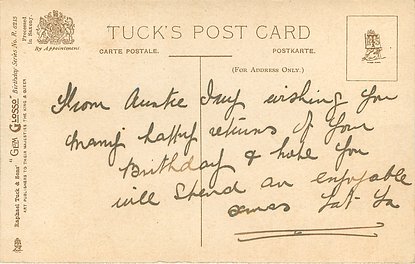 TUCK'S POST CARD
CARTE POSTALE.
POSTKARTE.
(FOR ADDRESS ONLY.)
By Appointment.
Raphael Tuck & Sons' "GEM GLOSSO" Birthday Series No.
ART PUBLISHERS TO THEIR MAJESTIES THE KING & QUEEN
Processed in Saxony.
From Auntie wishing you
many happy returns of your
Birthday & hope you
will spend an enjoyable
xmas